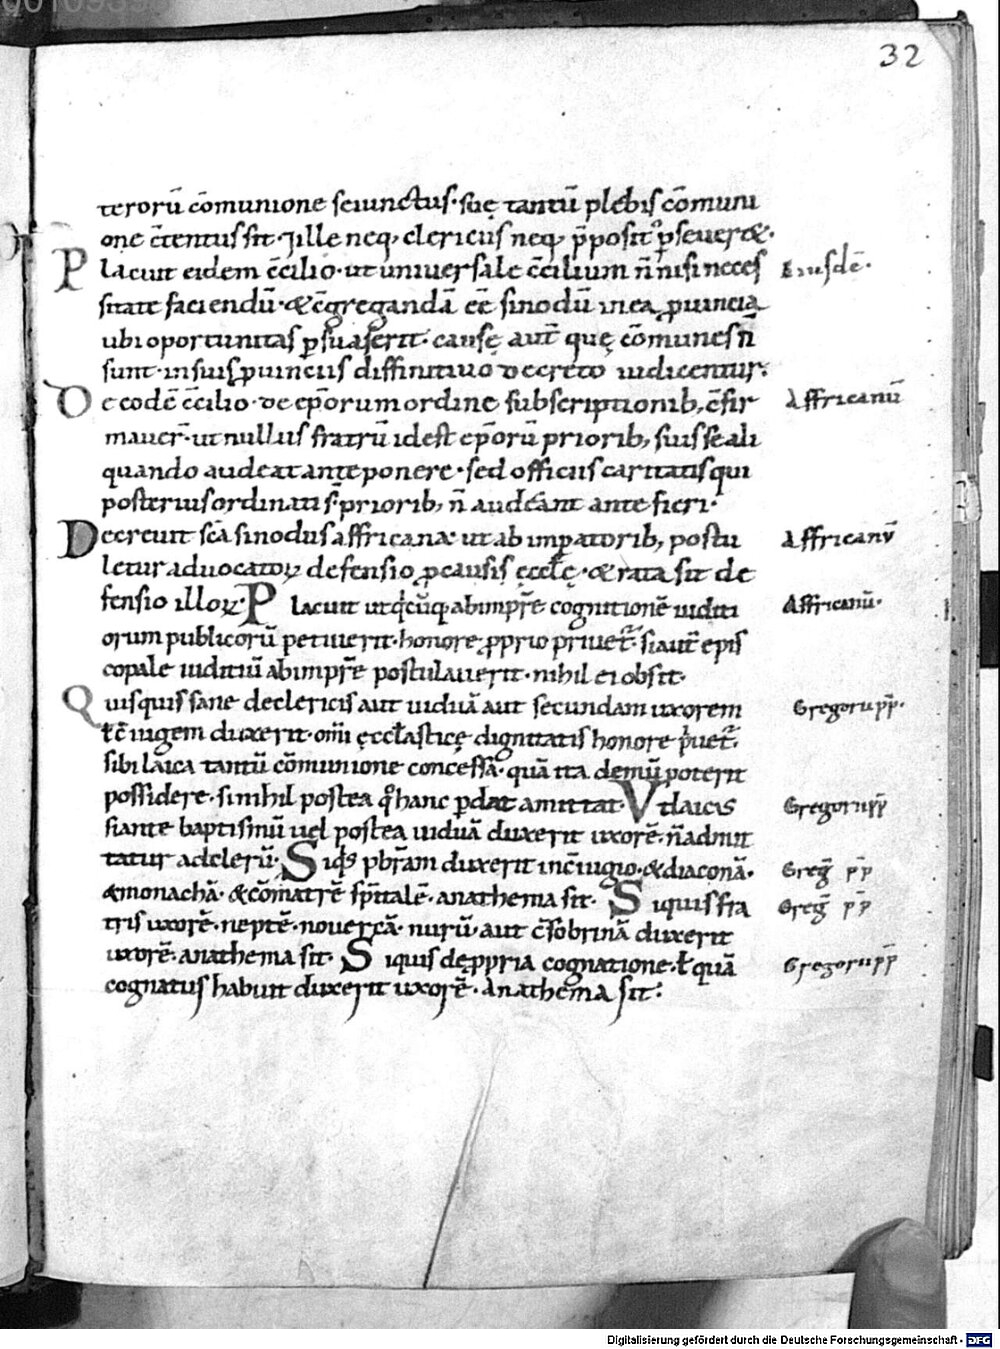 32
terorū cōmunione seiunctus· suę tantū plebis cōmuni
one c̄tentus sit· ⁊ ille neq; clericus neq; p̄posit᷒ ꝑseueret·
Placuit eidem c̄cilio· ut uniuersale c̄cilium n̄ nisi neces
Eiusdē·
sitate faciendū· & c̄gregandā eē sinodū in ea ꝓuincia
ubi oportunitas ꝑsuaserit· causę aut̄ quę cōmunes n̄
sunt· in suis ꝓuinciis diffinitiuo decreto iudicentur·
De eodē c̄cilio· de ep̄orum ordine subscriptionib; c̄fir
Affricanū
mauer̄· ut nullus fratrū idest ep̄orū priorib; suis se ali
quando audeat ante ponere· sed officiis caritatis qui
posterius ordinati s̄ priorib; n̄ audeant ante fieri·
Decreuit sc̄a sinodus affricana· ut ab imꝑatorib; postu
Affricanū
letur aduocatoꝝ defensio ꝓ causis ęcclę· & rata sit de
fensio illoꝝ· Placuit ut q̇cūq; ab imp̄re cognitionē iuditi
Affricanū·
orum publicorū petiuerit· honore ꝓprio priuet᷑· si aut̄ epis
copale iuditiū ab imp̄re postulauerit· nihil ei obsit·
Quisquis sane de clericis aut uiduā aut secundam uxorem
Gregorii pp̄·
ī c̄iugem duxerit· om̄i ęccl̄asticę dignitatis honore ṗuet᷑·
sibi laica tantū cōmunione concessa· quā ita demū poterit
possidere· si nihil postea q̊ hanc ꝑdat amittat· Vt laicis
Gregorii pp̄
si ante baptismū uel postea uiduā duxerit uxorē· n̄ admit
tatur ad clerū· Siq̇s pb̄ram duxerit in c̄iugio· & diaconā·
Greḡ pp̄
& monachā· & cōmatrē sp̄italē· anathema sit· Siquis fra
Greḡ pp̄
tris uxorē· neptē· nouercā· nurū· aut c̄sobrinā duxerit
uxorē· anathema sit· Siquis de ꝓpria cognatione· ł quā
Gregorii pp̄
cognatus habuit duxerit uxorē· Anathema sit·
Digitalisierung gefördert durch die Deutsche Forschungsgemeinschaft - DFG